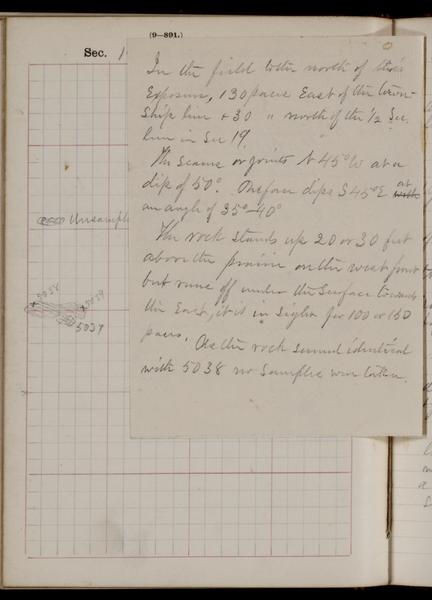 (9—891.)
Sec. 1
In the field to the north of this
Exposure, 130 paces East of the town-
ship line & 30 " north of the 1/2 Sec.
line in Sec 19.
The seams or joints N 45° W at a
dip of 50°. One face dips S 45° E at
an angle of 35°–40°
The rock stands up 20 or 30 feet
above the prairie on the west front
but runs off under the surface towards
the East, it is in sight for 100 or 150
paces. As the rock seemed identical
with 5038 no samples were taken.
Unsampl
5038
5039
5037